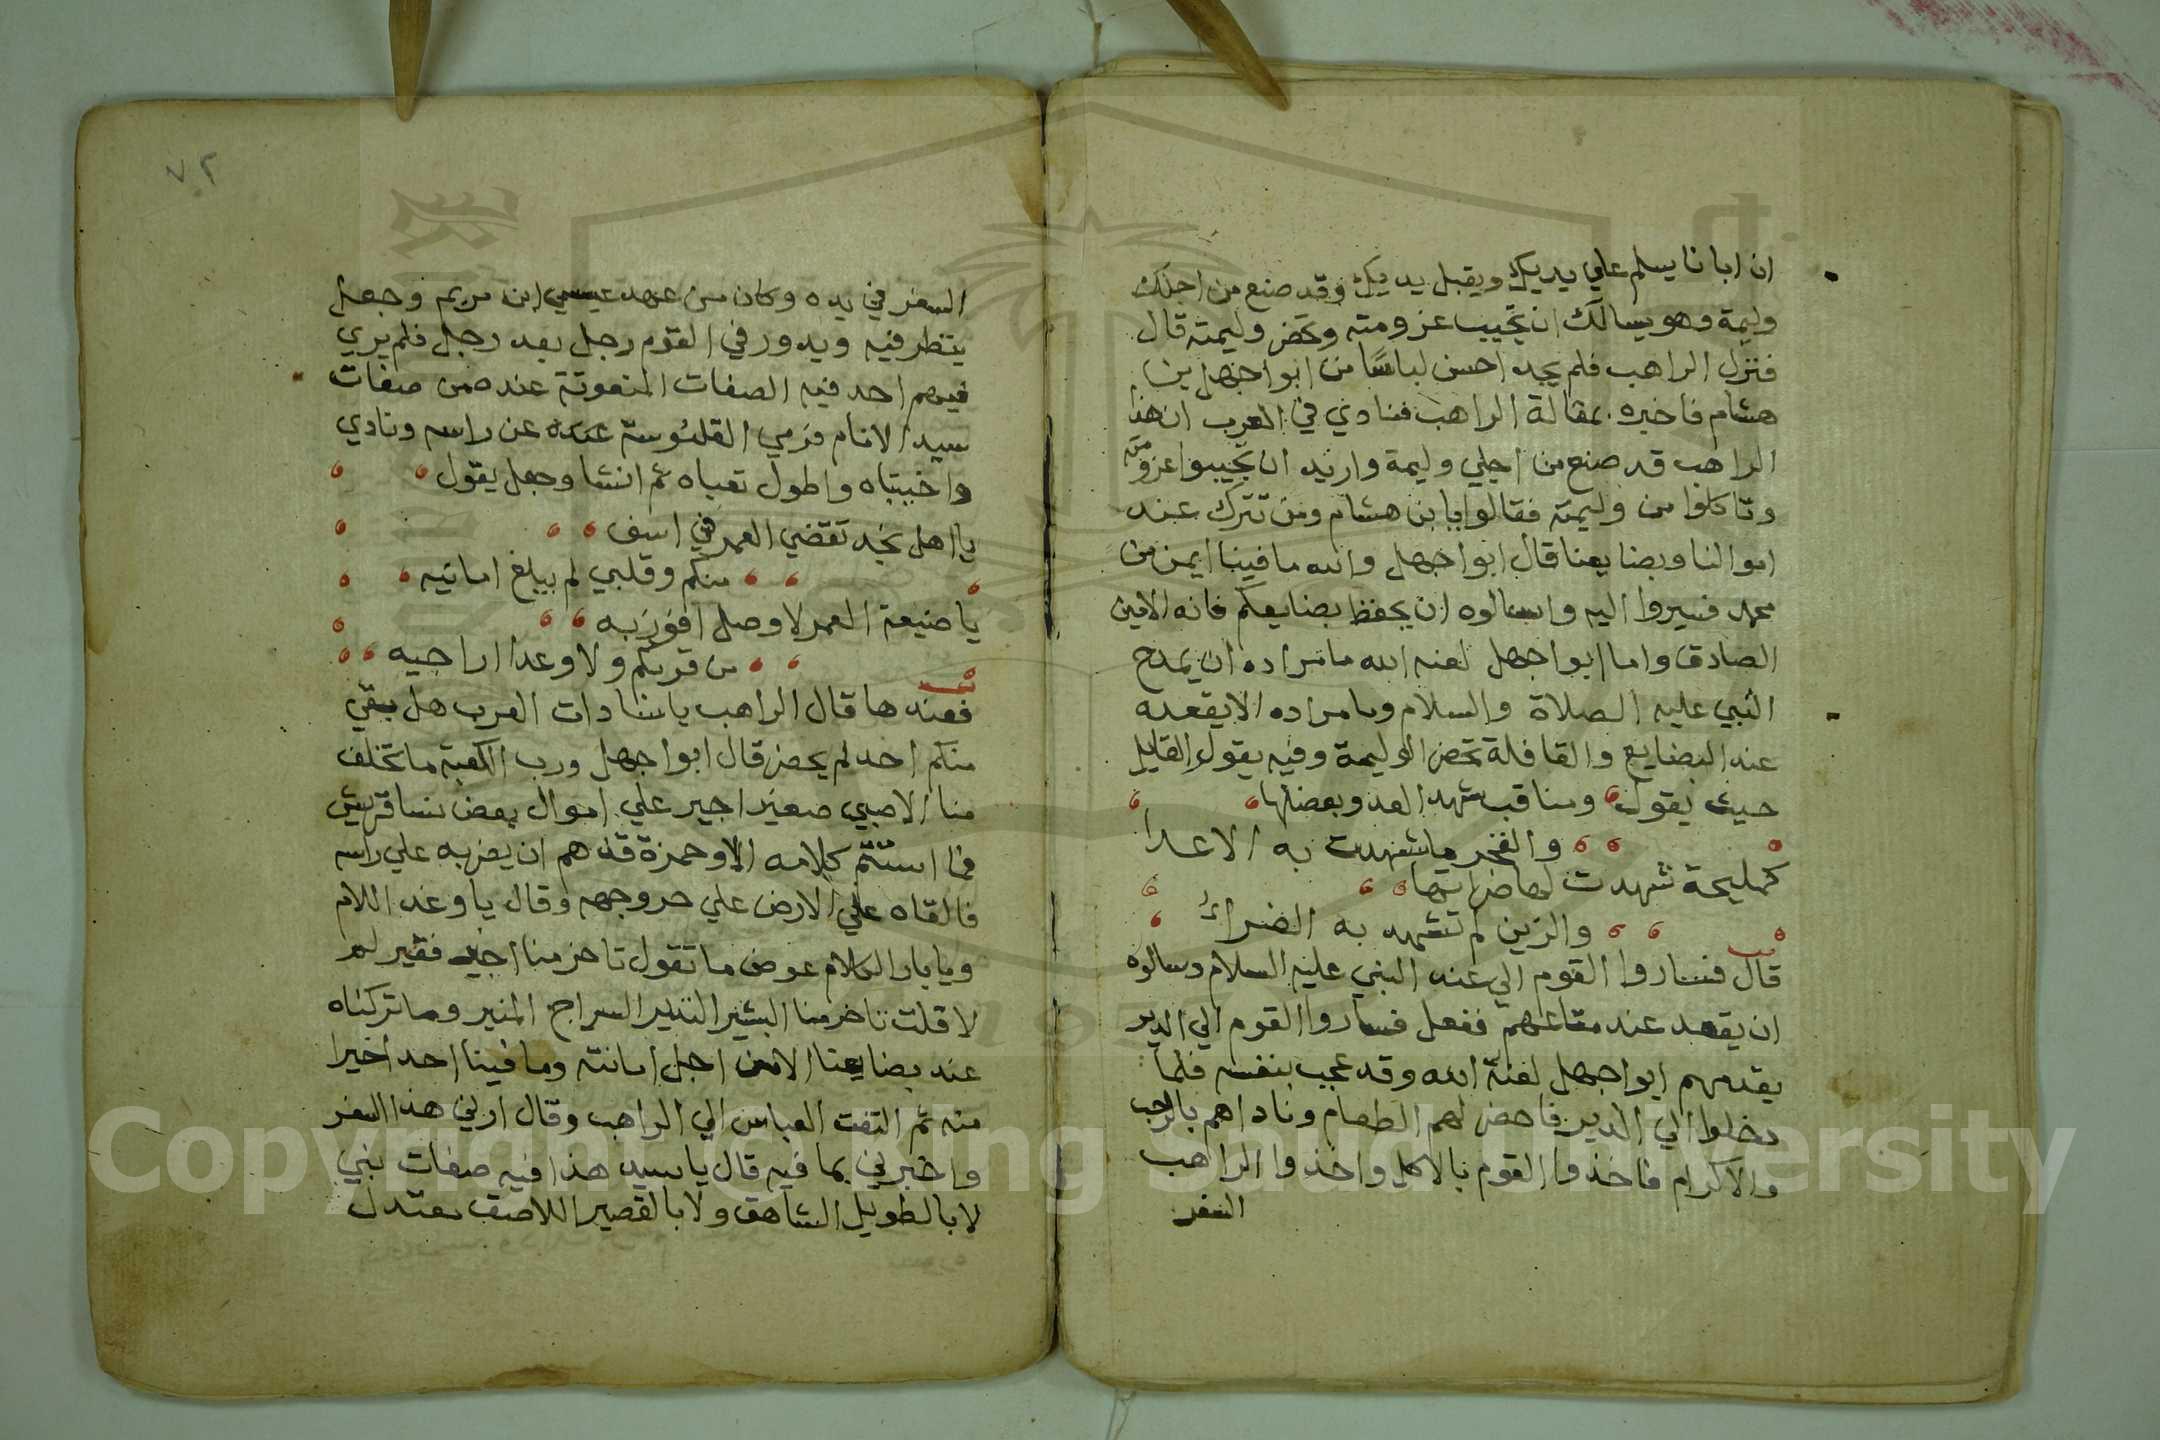 ان ابانا يسلم علي يديك ويقبل يديك وقد صنع من اجلك
وليمة وهو يسالك ان تجيب عزومته وتحضر وليمته قال
فنزل الراهب فلم يجد احسن لباسًا من ابوا جهل بن
هشام فاخبره بمقالة الراهب فنادي في العرب ان هذا
الراهب قد صنع من اجلي وليمة واريد ان تجيبوا عزومته
وتاكلوا من وليمته فقالوا يا بن هشام ومن تترك عند
اموالنا وبضايعنا قال ابوا جهل والله ما فينا ايمن من
محمد فسيروا اليه واسالوه ان يحفظ بضايعكم فانه الامين
الصادق واما ابوا جهل لعنه الله ما مراده ان يمدح
النبي عليه الصلاة والسلام وما مراده الا يقعده
عند البضايع والقافلة تحضر الوليمة وفيه يقول القايل
حيث يقول ومناقب شهد العدو بفضلها
والفخر ما شهدت به الاعدا
كمليحة شهدت لها ضراتها
والزين لم تشهد به الضراء
قال فساروا القوم الي عند النبي عليه السلام وسالوه
ان يقعد عند متاعهم ففعل فساروا القوم الي الدير
يقدمهم ابوا جهل لعنة الله وقد عجب بنفسه فلما
دخلوا الي الدير فاحضر لهم الطعام وناداهم بالرحب
والاكرام فاخذوا القوم بالاكل واخذوا الراهب
السفر
٧٢
السفر في يده وكان من عهد عيسي ابن مريم وجعل
ينظر فيه ويدور في القوم رجل بعد رجل فلم يري
فيهم احد فيه الصفات المنعوتة عنده من صفات
سيد الانام فرمي القلنوسة عنده عن راسه ونادي
واخيبتاه واطول تعباه ثم انشا وجعل يقول
يا اهل نجد تقضي العمر في اسف
منكم وقلبي لم يبلغ امانيه
يا ضيعة العمر لا وصل افوز به
من قربكم ولا وعدا اراجيه
فعندها قال الراهب يا سادات العرب هل بقي
منكم احد لم يحضر قال ابوا جهل ورب الكعبة ما تخلف
منا الا صبي صغير اجير علي اموال بعض نسا قريش
فما استتم كلامه الا وحمزة قد هم ان يضربه علي راسه
فالقاه علي الارض علي حر وجهه وقال يا وغد اللام
ويا بار الكلام عوض ما تقول تاخر منا اجير فقير لم
لا قلت تاخر منا البشير النذير السراج المنير وما تركناه
عند بضايعنا الا من اجل امانته وما فينا احد اخيرا
منه ثم التفت العباس الي الراهب وقال اريني هذا السفر
واخبرني بما فيه قال يا سيد هذا فيه صفات نبي
لا بالطويل الشاهق ولا بالقصير اللاصق معتدل
Copyright © King Saud University